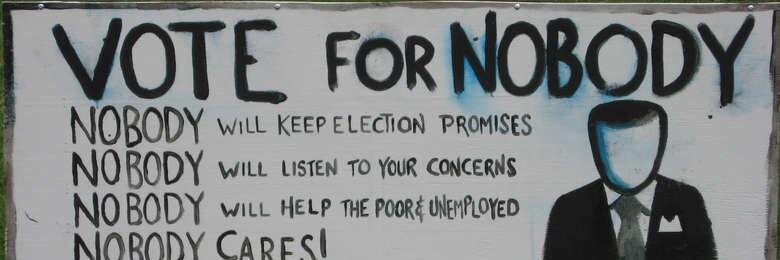 VOTE FOR NOBODY
NOBODY WILL KEEP ELECTION PROMISES
NOBODY WILL LISTEN TO YOUR CONCERNS
NOBODY WILL HELP THE POOR & UNEMPLOYED
NOBODY CARES!